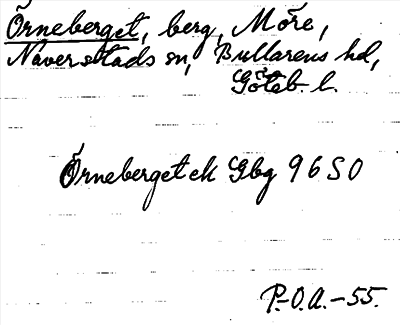 Örneberget, berg, Möre,
Naverstads sn, Bullarens hd,
Göteb. l.
Örneberget ek Gbg 96 SO
P.-O.A.-55.